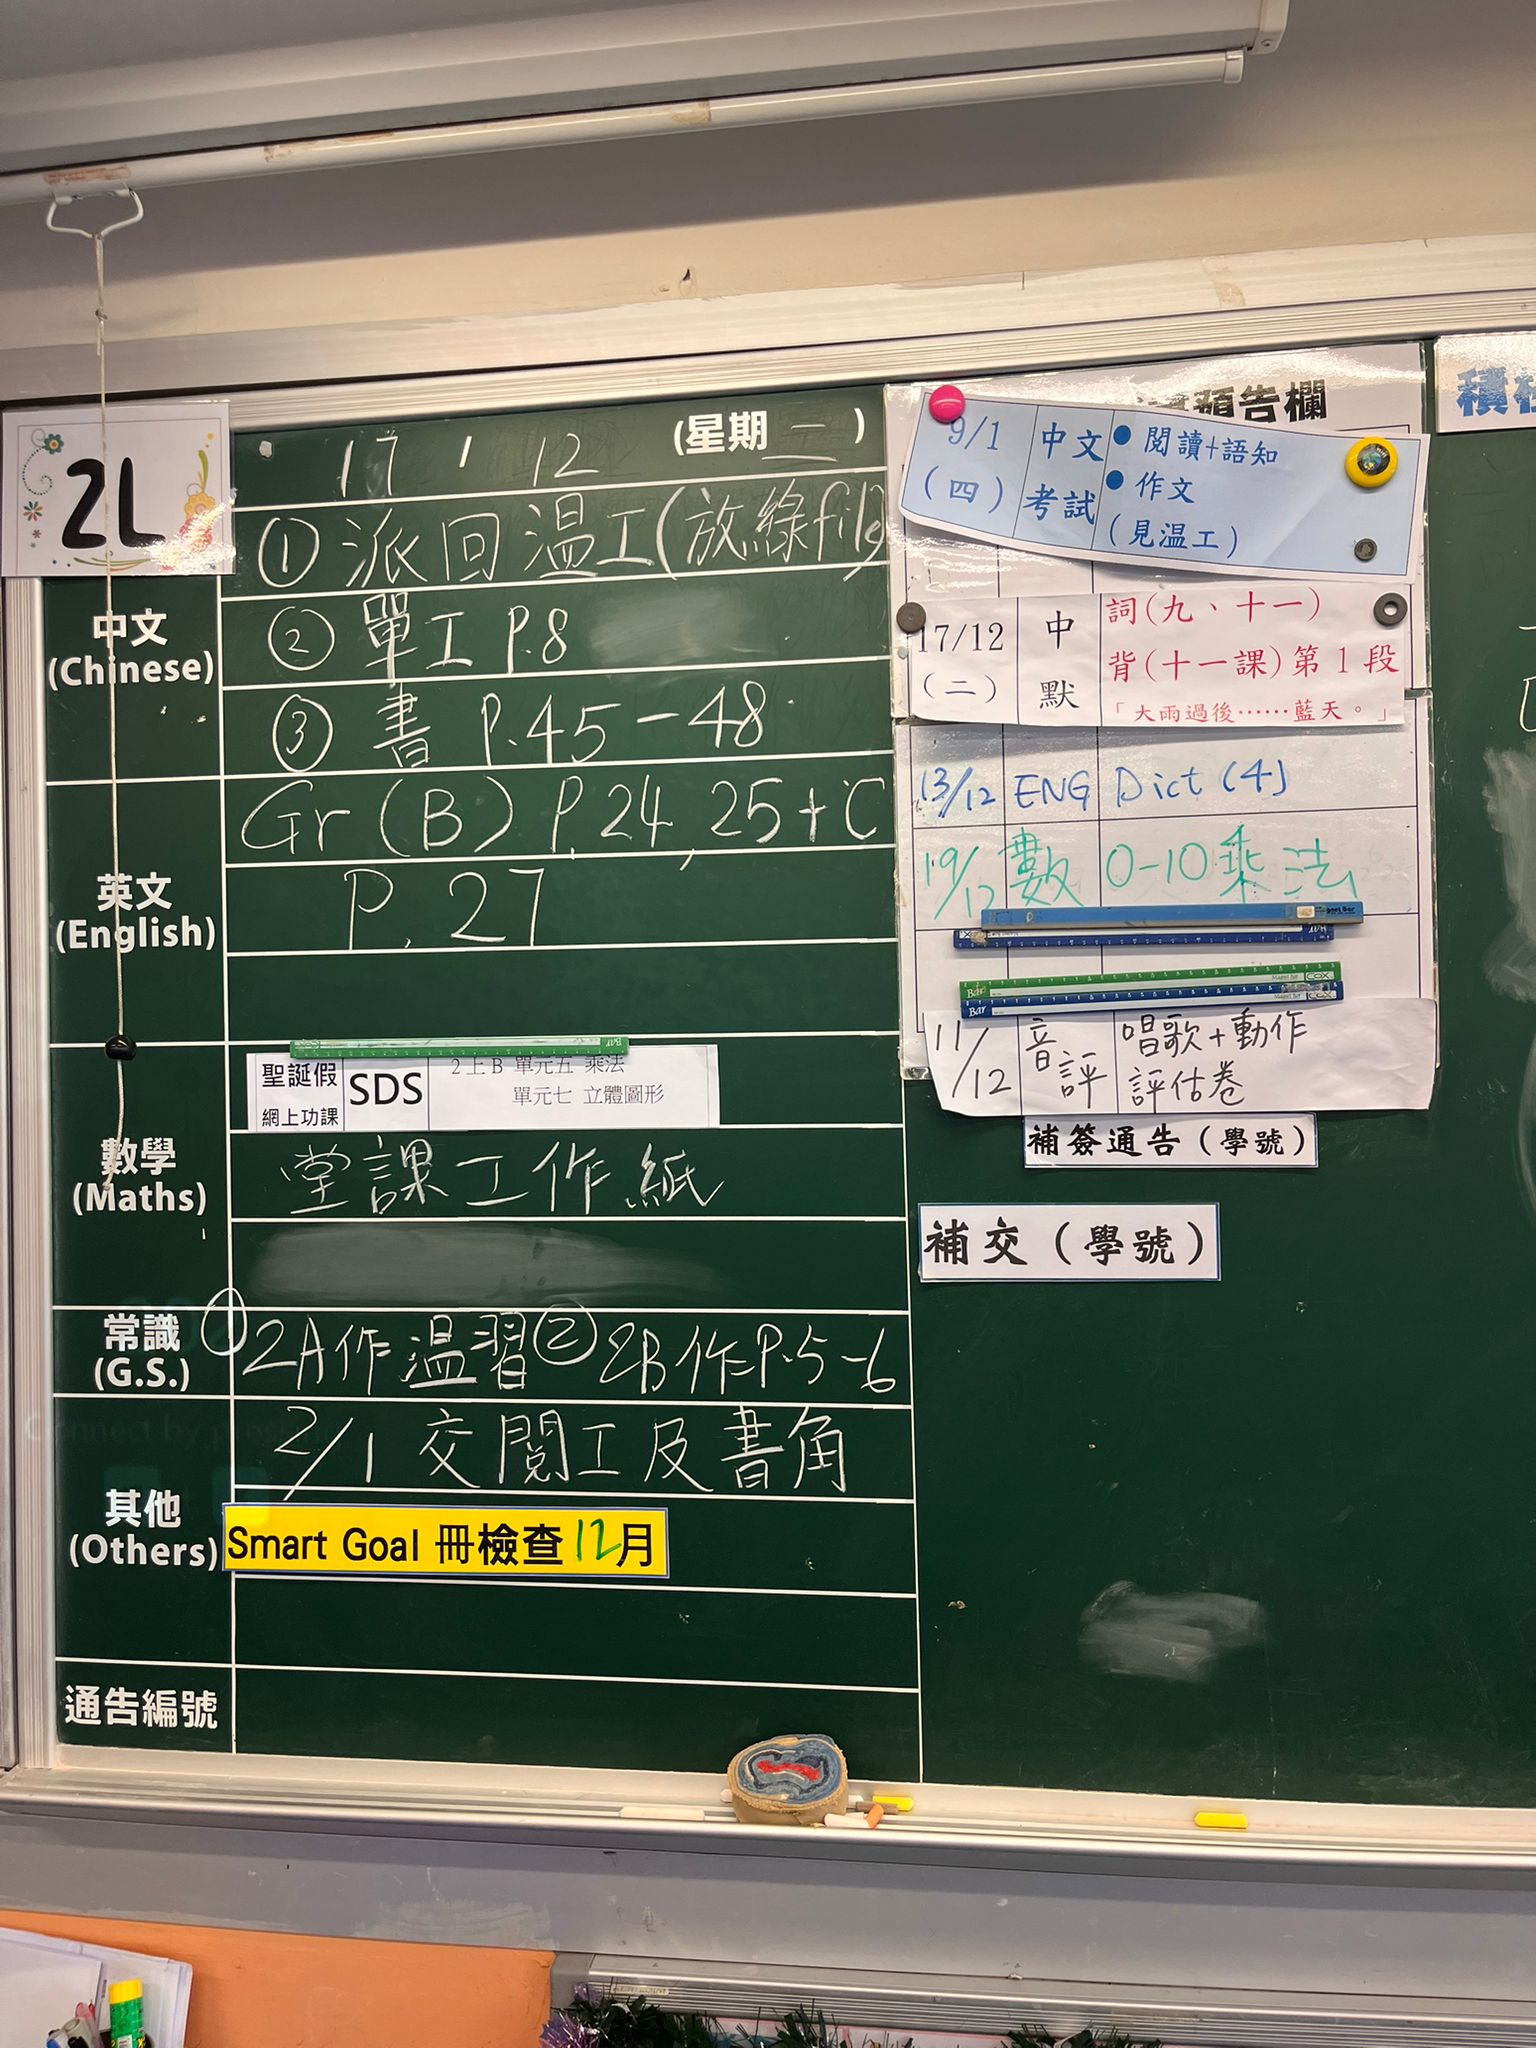 2L
17 / 12 (星期二)
中文
(Chinese)
① 派回温工(放綠file)
② 單工 P.8
③ 書 P.45-48
英文
(English)
Gr (B) P.24, 25 + C
P. 27
數學
(Maths)
聖誕假
網上功課
SDS
2上B 單元五 乘法
單元七 立體圖形
堂課工作紙
常識
(G.S.)
① 2A作温習 ② 2B作P.5-6
其他
(Others)
2/1 交閱工及書角
Smart Goal 冊檢查12月
通告編號
預告欄
9/1
(四)
中文
考試
● 閱讀+語知
● 作文
(見温工)
17/12
(二)
中
默
詞(九、十一)
背(十一課)第1段
「大雨過後……藍天。」
13/12 ENG Dict (4)
19/12 數 0-10乘法
Magnet Bar
Bar COX
Bar COX
11/12
音
評
唱歌+動作
評估卷
補簽通告(學號)
補交(學號)
積